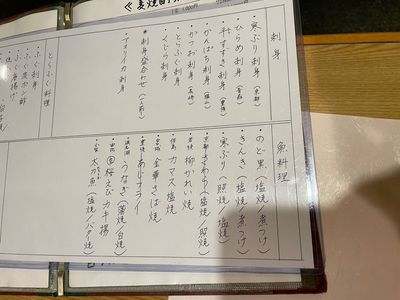 刺身
・寒ぶり刺身(京都)
・ひらめ刺身(青森)
・平すずき刺身
・かんぱち刺身
・かつお刺身(長崎)
・とらふぐ刺身
・くじら刺身
*刺身盛合わせ(一人前)
・アオリイカ刺身
とらふぐ料理
・ふぐ刺身
・ふぐ皮ポン酢
・ふぐ唐揚げ
魚料理
・のど黒(塩焼/煮つけ)
・きんき(塩焼/煮つけ)
・寒ぶり(照焼/塩焼)
・京都さわら(塩焼/照焼)
・若狭 柳かれい焼
・カマス塩焼
・宮城 金華さば焼
・あじフライ
・浜名湖 うなぎ(蒲焼/白焼)
・桜えびカキ揚
・太刀魚(塩焼/バター焼)